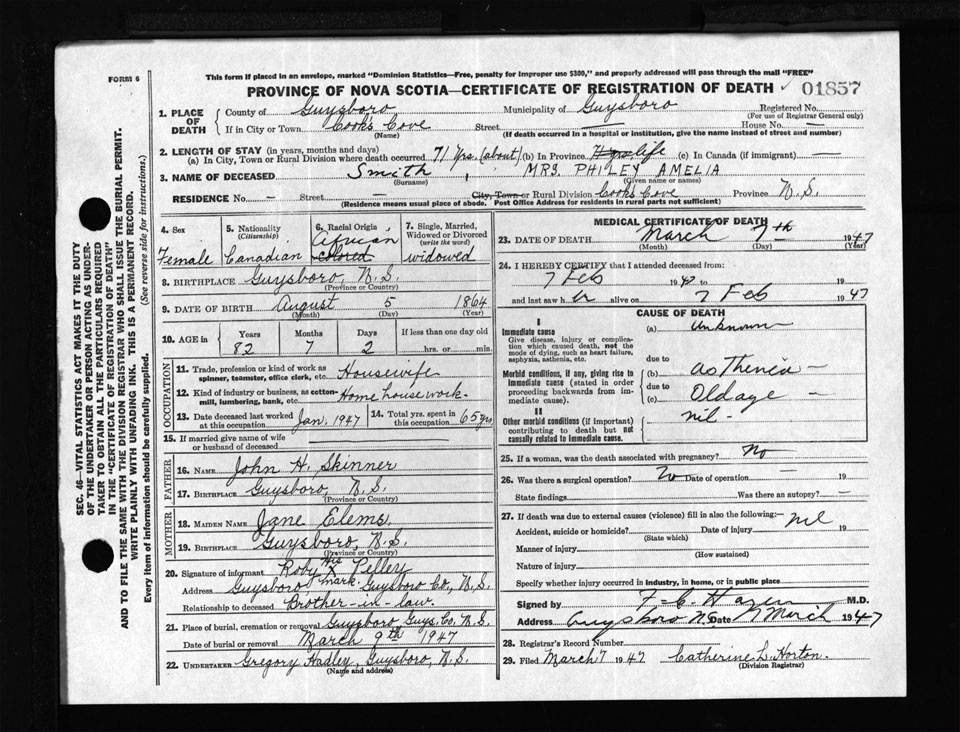 FORM 6
This form if placed in an envelope, marked "Dominion Statistics—Free, penalty for improper use $300," and properly addressed will pass through the mail "FREE"
PROVINCE OF NOVA SCOTIA—CERTIFICATE OF REGISTRATION OF DEATH 01857
1. PLACE OF DEATH County of Guysboro Municipality of Guysboro Registered No.
(For use of Registrar General only)
If in City or Town Cooks Cove Street — House No. —
(Name) (If death occurred in a hospital or institution, give the name instead of street and number)
2. LENGTH OF STAY (in years, months and days)
(a) In City, Town or Rural Division where death occurred 71 yrs. (about) (b) In Province life (c) In Canada (if immigrant) —
3. NAME OF DECEASED Smith, MRS. PHILEY AMELIA
(Surname) (Given name or names)
RESIDENCE No. — Street — City, Town or Rural Division Cooks Cove Province N.S.
(Residence means usual place of abode. Post Office Address for residents in rural parts not sufficient)
SEC. 46—VITAL STATISTICS ACT MAKES IT THE DUTY
OF THE UNDERTAKER OR PERSON ACTING AS UNDER-
TAKER TO OBTAIN ALL THE PARTICULARS REQUIRED
IN THE "CERTIFICATE OF REGISTRATION OF DEATH"
AND TO FILE THE SAME WITH THE DIVISION REGISTRAR WHO SHALL ISSUE THE BURIAL PERMIT.
WRITE PLAINLY WITH UNFADING INK. THIS IS A PERMANENT RECORD.
Every item of information should be carefully supplied. (See reverse side for instructions.)
4. Sex 5. Nationality 6. Racial Origin 7. Single, Married,
(Citizenship) African Widowed or Divorced
(write the word)
Female Canadian colored widowed
8. BIRTHPLACE Guysboro, N.S.
(Province or Country)
9. DATE OF BIRTH August 5 1864
(Month) (Day) (Year)
10. AGE in Years Months Days If less than one day old
82 7 2 hrs. or min
OCCUPATION
11. Trade, profession or kind of work as
spinner, teamster, office clerk, etc. Housewife
12. Kind of industry or business, as cotton-
mill, lumbering, bank, etc. Home housework-
13. Date deceased last worked
at this occupation Jan. 1947
14. Total yrs. spent in
this occupation 65 yrs
15. If married give name of wife
or husband of deceased
FATHER
16. NAME John H. Skinner
17. BIRTHPLACE Guysboro, N.S.
(Province or Country)
MOTHER
18. MAIDEN NAME Jane Elems
19. BIRTHPLACE Guysboro, N.S.
(Province or Country)
20. Signature of informant Roby his X mark Peffley
Address Guysboro, Guysboro Co., N.S.
Relationship to deceased Brother-in-law.
21. Place of burial, cremation or removal Guysboro, Guys. Co. N.S.
Date of burial or removal March 9th 1947
22. UNDERTAKER Gregory Hadley, Guysboro, N.S.
(Name and address)
MEDICAL CERTIFICATE OF DEATH
23. DATE OF DEATH March 7th 1947
(Month) (Day) (Year)
24. I HEREBY CERTIFY that I attended deceased from:
7 Feb 19 to 19
and last saw h er alive on 7 Feb 1947
CAUSE OF DEATH
I
Immediate cause
Give disease, injury or complica-
tion which caused death, not the
mode of dying, such as heart failure,
asphyxia, asthenia, etc.
(a) Unknown
due to
Morbid conditions, if any, giving rise to
immediate cause (stated in order
proceeding backwards from im-
mediate cause).
(b) asthenia —
due to
(c) Old age —
II
Other morbid conditions (if important)
contributing to death but not
causally related to immediate cause.
nil -
25. If a woman, was the death associated with pregnancy? No
26. Was there a surgical operation? No Date of operation — 19
State findings Was there an autopsy? —
27. If death was due to external causes (violence) fill in also the following:— nil
Accident, suicide or homicide? Date of injury 19
(State which)
Manner of injury
(How sustained)
Nature of injury
Specify whether injury occurred in industry, in home, or in public place
Signed by M.D.
Address Guysboro N.S. Date 7 March 1947
28. Registrar's Record Number
29. Filed March 7 1947 Catherine L. Horton.
(Division Registrar)